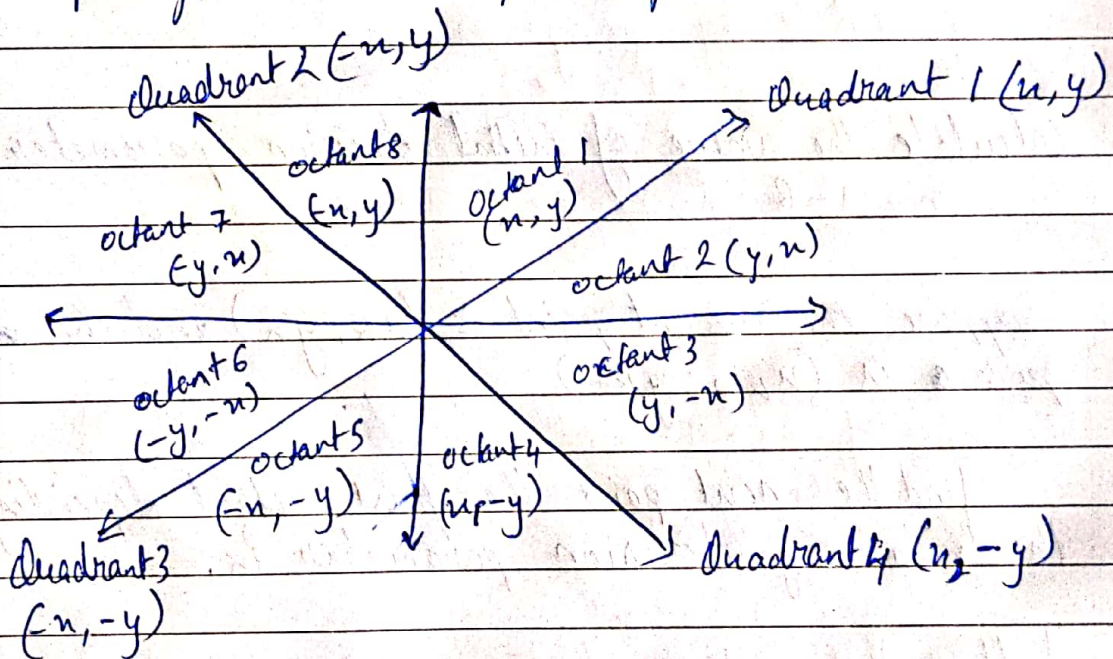 Quadrant 2 (-x, y)
Quadrant 1 (x, y)
octant 8
(-x, y)
octant 1
(x, y)
octant 7
(-y, x)
octant 2 (y, x)
octant 6
(-y, -x)
octant 3
(y, -x)
octant 5
(-x, -y)
octant 4
(x, -y)
Quadrant 3
(-x, -y)
Quadrant 4 (x, -y)